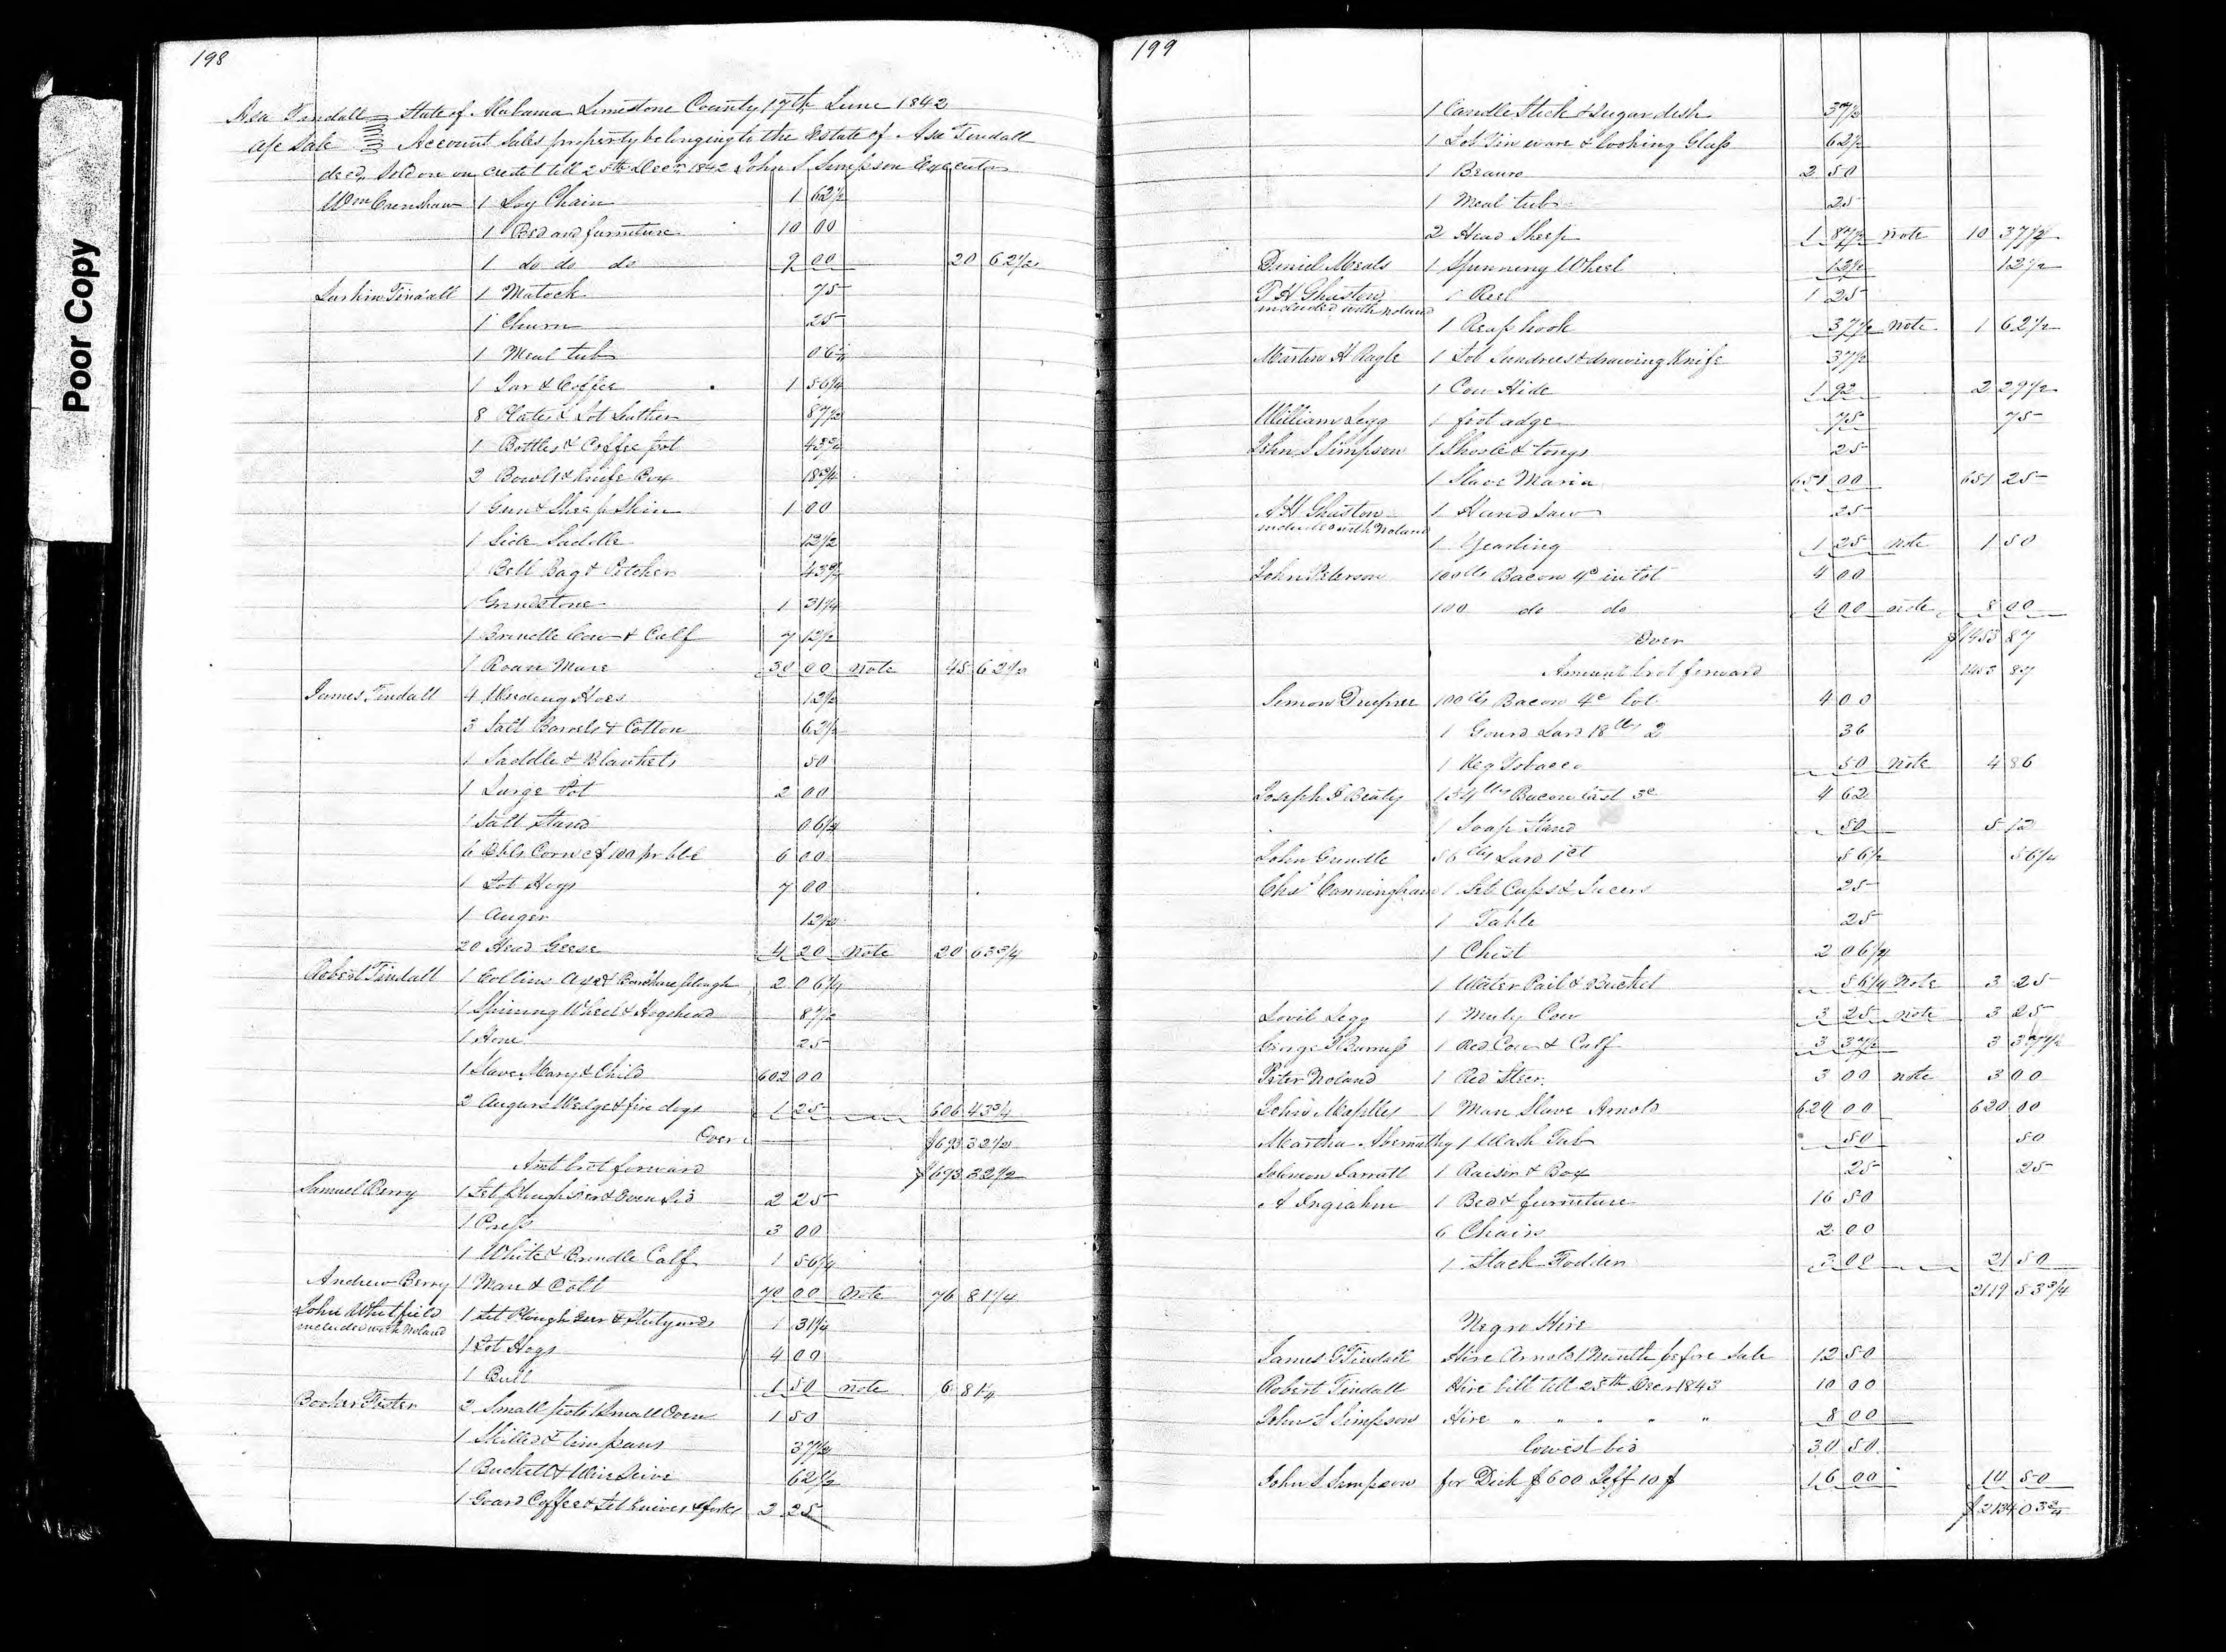 Poor Copy
198
Asa Tindall State of Alabama Limestone County 17th June 1842
a/c Sale Account Sales property belonging to the Estate of Asa Tindall
decd Sold on a credit till 25th Decr 1842 John S Simpson Executor
Wm Crenshaw 1 Log Chain 1 62 1/2
1 Bed and furniture 10 00
1 do do do 9 00 20 62 1/2
Larkin Tindall 1 Matock 75
1 Churn 25
1 Meal tub 06 1/4
1 Jar & Coffee 1 56 1/4
8 Plates & Lot Leather 87 1/2
1 Bottles & Coffee pot 43 3/4
2 Bowls & Knife Box 18 3/4
1 Gun & Sheep Skin 1 00
1 Side Saddle 12 1/2
1 Bell Bag & Pitcher 43 3/4
1 Grindstone 1 31 1/4
1 Brindle Cow & Calf 7 12 1/2
1 Roan Mare 30 00 note 45 62 1/2
James Tindall 4 Weeding Hoes 12 1/2
3 Salt Barrels & Cotton 62 1/2
1 Saddle & Blankets 50
1 Large Pot 2 00
1 Salt Stand 06 1/4
6 Bbls Corn @ $1 00 pr bbl 6 00
1 Lot Hogs 7 00
1 Auger 12 1/2
20 Head Geese 4 20 Note 20 63 3/4
Robert Tindall 1 Collins Axe & Barshare plough 2 06 1/4
1 Spinning Wheel & Hogshead 87 1/2
1 Hone 25
1 Slave Mary & Child 602 00
2 Augurs Wedge & fire dogs 1 25 606 43 3/4
Over $693 32 1/2
Amt brot forward $693 32 1/2
Samuel Berry 1 Set plough Gear & Oven Lid 2 25
1 Press 3 00
1 White & Brindle Calf 1 56 1/4
Andrew Berry 1 Mare & Colt 70 00 Note 76 81 1/4
John Whitfield 1 Set Plough Gear & Stilyards 1 31 1/4
included with Noland
1 Lot Hogs 4 00
1 Bull 1 50 note 6 81 1/4
Booker Foster 2 Small pots 1 Small Oven 1 50
1 Skillet & tin pans 37 1/2
1 Buckett & Wire Seive 62 1/2
1 Goard Coffee & Set Knives & forks 2 25
199
1 Candle Stick & Sugar dish 37 1/2
1 Lot Tin ware & looking Glass 62 1/2
1 Beauro 2 50
1 Meal tub 25
2 Head Sheep 1 87 1/2 note 10 37 1/2
Daniel Meals 1 Spinning Wheel 12 1/2 12 1/2
T H Ghaston 1 Reel 1 25
included with Noland
1 Reap hook 37 1/2 Note 1 62 1/2
Martin H Ragle 1 Lot Sundries & drawing Knife 37 1/2
1 Cow Hide 1 92 2 29 1/2
William Legg 1 foot adge 75 75
John S Simpson 1 Shovle & tongs 25
1 Slave Maria 651 00 651 25
A H Ghaston 1 Hand Saw 25
included with Noland
1 Yearling 1 25 note 1 50
John Peterson 100 lbs Bacon 4c in lot 4 00
100 do do 4 00 note 8 00
Over $1453 87
Amount brot forward 1453 87
Simon Dupree 100 lbs Bacon 4c lot 4 00
1 Gourd Lard 18 lbs 2 36
1 Keg Tobacco 50 Note 4 86
Joseph J Beaty 154 lbs Bacon last 3c 4 62
1 Soap Stand 50 5 12
John Grindle 56 lbs Lard 1 ct 56 1/2 56 1/4
Chas Cunningham 1 Set Cups & Sucers 25
1 Table 25
1 Chist 2 06 1/4
1 Water Pail & Bucket 56 1/4 Note 3 25
Lovil Legg 1 Muly Cow 3 25 note 3 25
George Burruss 1 Red Cow & Calf 3 37 1/2 3 37 1/2
Peter Noland 1 Red Steer 3 00 note 3 00
John Maples 1 Man Slave Arnold 620 00 620 00
Martha Abernathy 1 Wash Tub 50 50
Solomon Jarratt 1 Raisor & Box 25 25
A Ingrahm 1 Bed & furniture 16 50
6 Chairs 2 00
1 Stack Fodder 3 00 21 50
2119 53 3/4
Negro Hire
James G Tindall Hire Arnold 1 Month before Sale 12 50
Robert Tindall Hire bill till 25th Decr 1843 10 00
John S Simpson Hire " " " " " 8 00
lowest bid 30 50
John S Simpson for Dick $6 00 Jeff 10 $ 16 00 14 50
$2134 03 3/4